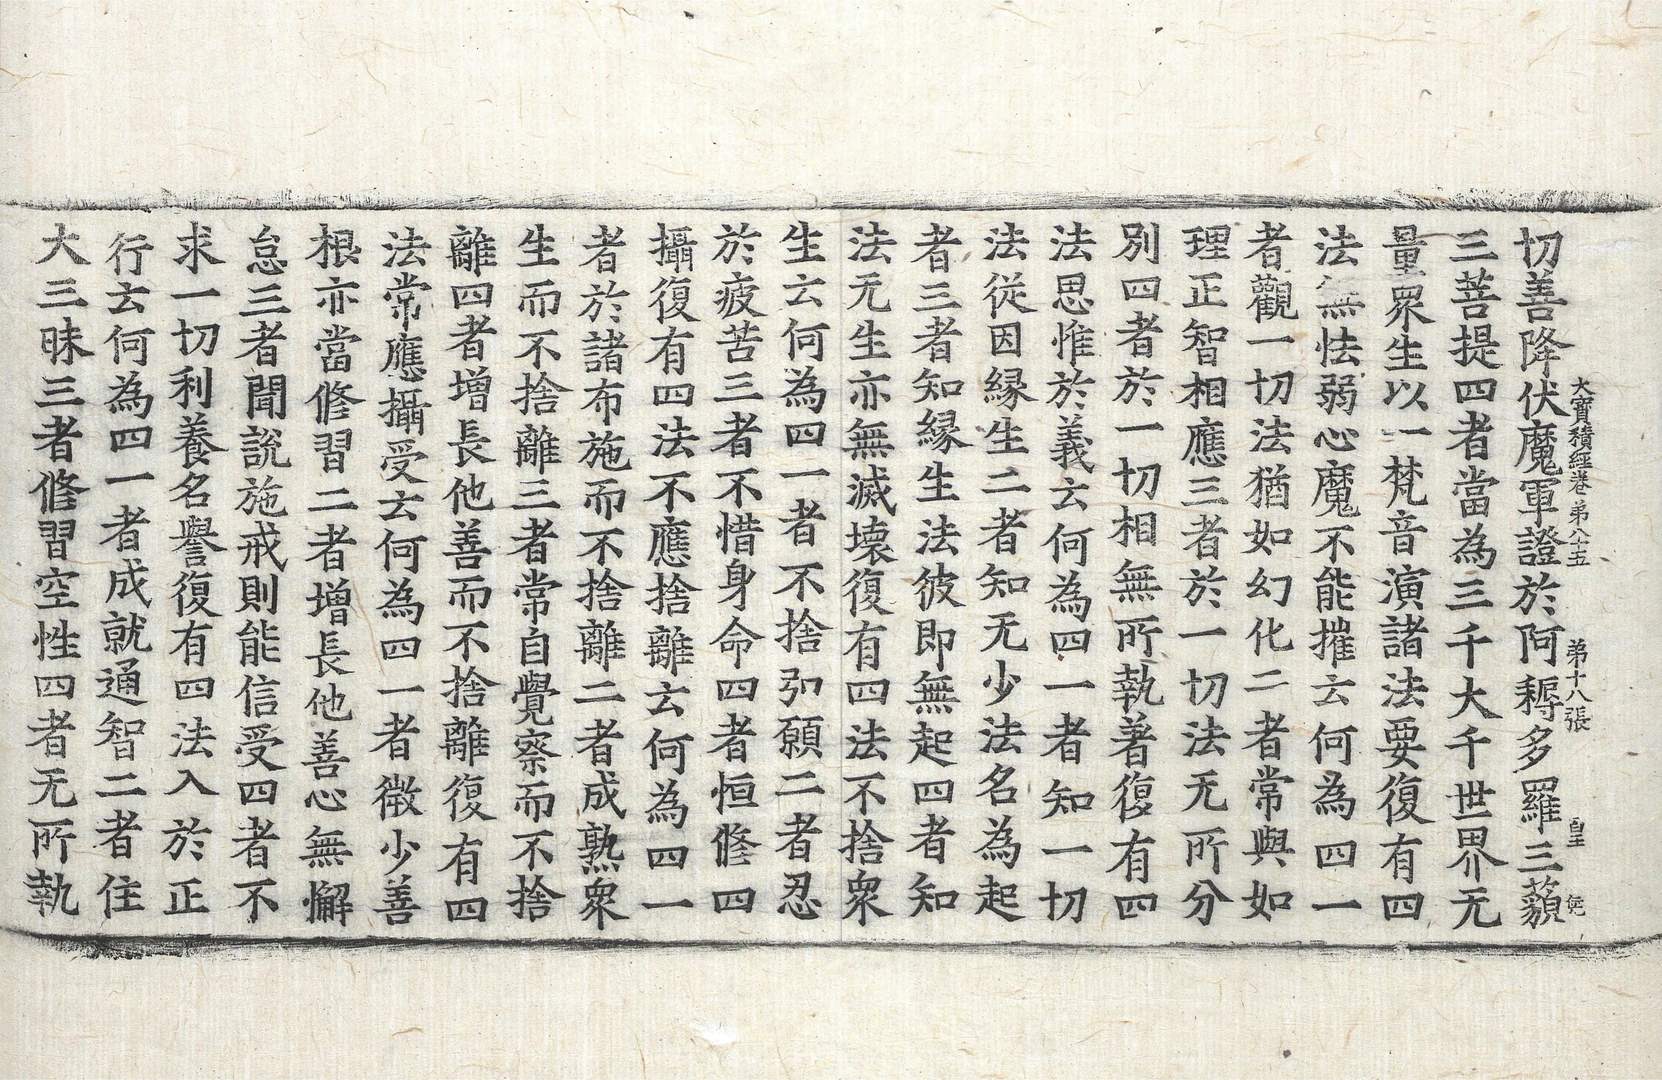 大寶積經卷第八十五 第十八張 皇
切善降伏魔軍證於阿耨多羅三藐
三菩提四者當為三千大千世界无
量衆生以一梵音演諸法要復有四
法無怯弱心魔不能摧云何為四一
者觀一切法猶如幻化二者常與如
理正智相應三者於一切法无所分
別四者於一切相無所執著復有四
法思惟於義云何為四一者知一切
法從因緣生二者知无少法名為起
者三者知緣生法彼即無起四者知
法无生亦無滅壞復有四法不捨衆
生云何為四一者不捨弘願二者忍
於疲苦三者不惜身命四者恒修四
攝復有四法不應捨離云何為四一
者於諸布施而不捨離二者成熟衆
生而不捨離三者常自覺察而不捨
離四者增長他善而不捨離復有四
法常應攝受云何為四一者微少善
根亦當修習二者增長他善心無懈
怠三者聞說施戒則能信受四者不
求一切利養名譽復有四法入於正
行云何為四一者成就通智二者住
大三昧三者修習空性四者无所執